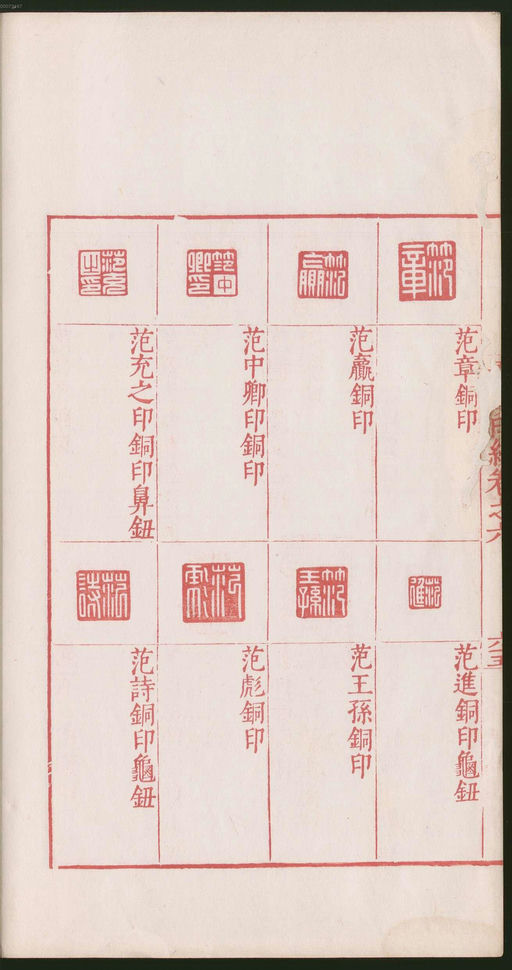 范章銅印
范臝銅印
范中卿印銅印
范充之印銅印鼻鈕
范進銅印龜鈕
范王孫銅印
范彪銅印
范詩銅印龜鈕
卷之六